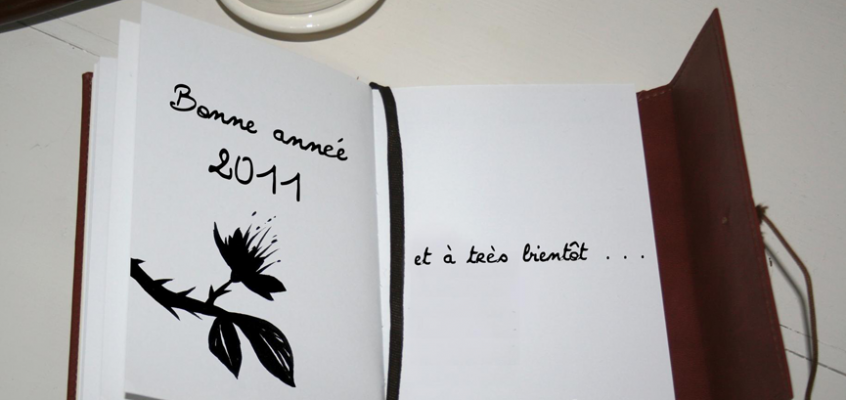 Bonne année
2011
et à très bientôt ...